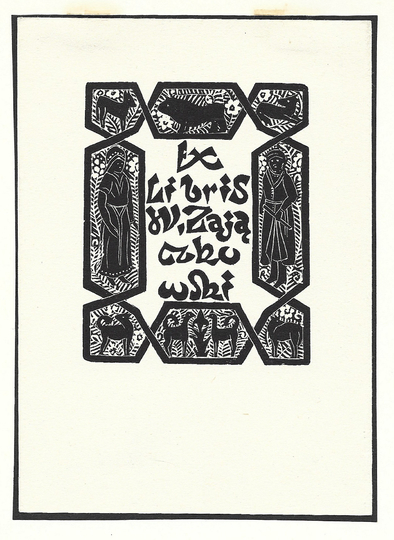 Ex
Libris
W. Zają
czko
wski